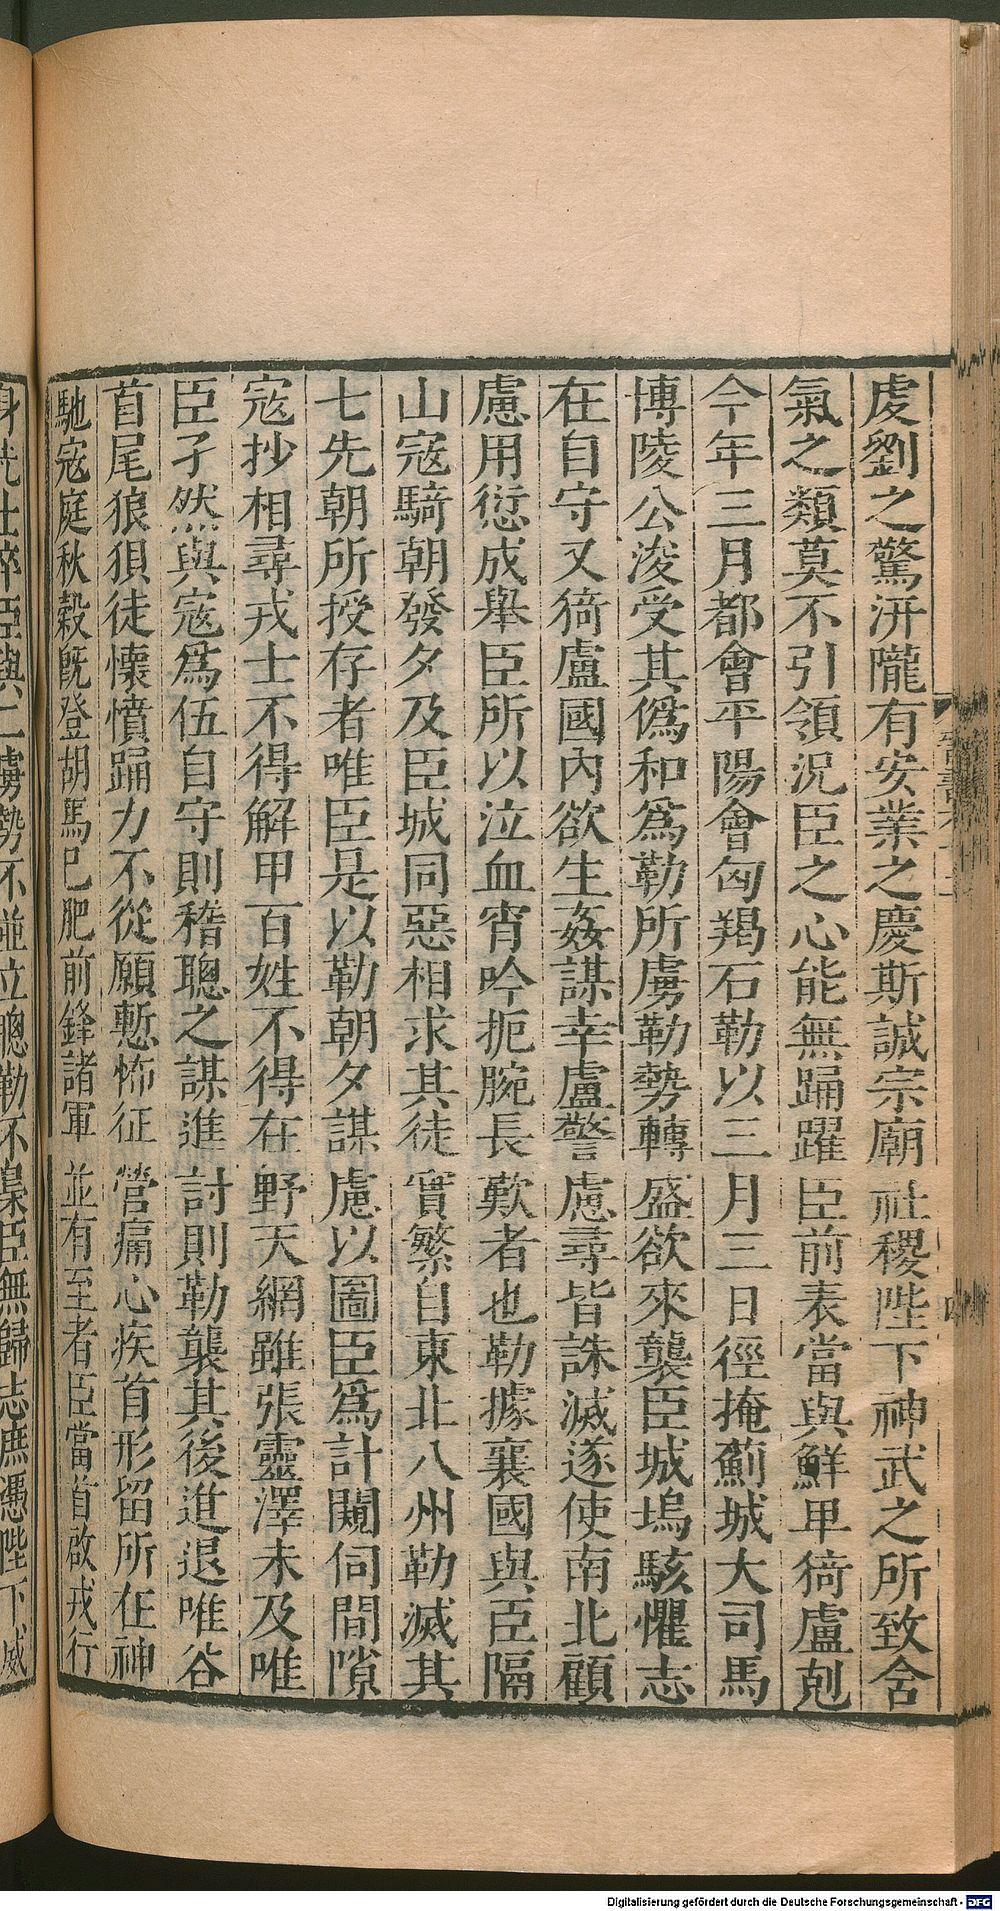 虔劉之驚汧隴有安業之慶斯誠宗廟社稷陛下神武之所致含
氣之類莫不引領況臣之心能無踊躍臣前表當與鮮卑猗盧剋
今年三月都會平陽會匈羯石勒以三月三日徑掩薊城大司馬
博陵公浚受其偽和為勒所虜勒勢轉盛欲來襲臣城塢駭懼志
在自守又猗盧國內欲生姦謀幸盧警慮尋皆誅滅遂使南北顧
慮用愆成舉臣所以泣血宵吟扼腕長歎者也勒據襄國與臣隔
山寇騎朝發夕及臣城同惡相求其徒實繁自東北八州勒滅其
七先朝所授存者唯臣是以勒朝夕謀慮以圖臣為計闚伺間隙
寇抄相尋戎士不得解甲百姓不得在野天網雖張靈澤未及唯
臣孑然與寇為伍自守則稽聰之謀進討則勒襲其後進退唯谷
首尾狼狽徒懷憤踊力不從願慙怖征營痛心疾首形留所在神
馳寇庭秋穀既登胡馬已肥前鋒諸軍並有至者臣當首啟戎行
身先士卒臣與二虜勢不並立聰勒不梟臣無歸志庶憑陛下威
Digitalisierung gefördert durch die Deutsche Forschungsgemeinschaft - DFG